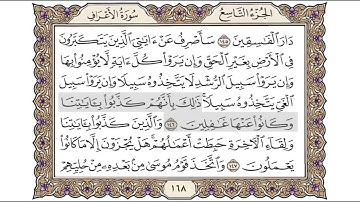 الجزء التاسع
سورة الأعراف
دَارَ ٱلْفَٰسِقِينَ ١٤٥ سَأَصْرِفُ عَنْ ءَايَٰتِىَ ٱلَّذِينَ يَتَكَبَّرُونَ
فِى ٱلْأَرْضِ بِغَيْرِ ٱلْحَقِّ وَإِن يَرَوْا۟ كُلَّ ءَايَةٍ لَّا يُؤْمِنُوا۟ بِهَا
وَإِن يَرَوْا۟ سَبِيلَ ٱلرُّشْدِ لَا يَتَّخِذُوهُ سَبِيلًا وَإِن يَرَوْا۟ سَبِيلَ
ٱلْغَىِّ يَتَّخِذُوهُ سَبِيلًا ذَٰلِكَ بِأَنَّهُمْ كَذَّبُوا۟ بِـَٔايَٰتِنَا
وَكَانُوا۟ عَنْهَا غَٰفِلِينَ ١٤٦ وَٱلَّذِينَ كَذَّبُوا۟ بِـَٔايَٰتِنَا
وَلِقَآءِ ٱلْءَاخِرَةِ حَبِطَتْ أَعْمَٰلُهُمْ هَلْ يُجْزَوْنَ إِلَّا مَا كَانُوا۟
يَعْمَلُونَ ١٤٧ وَٱتَّخَذَ قَوْمُ مُوسَىٰ مِنۢ بَعْدِهِۦ مِنْ حُلِيِّهِمْ
١٦٨